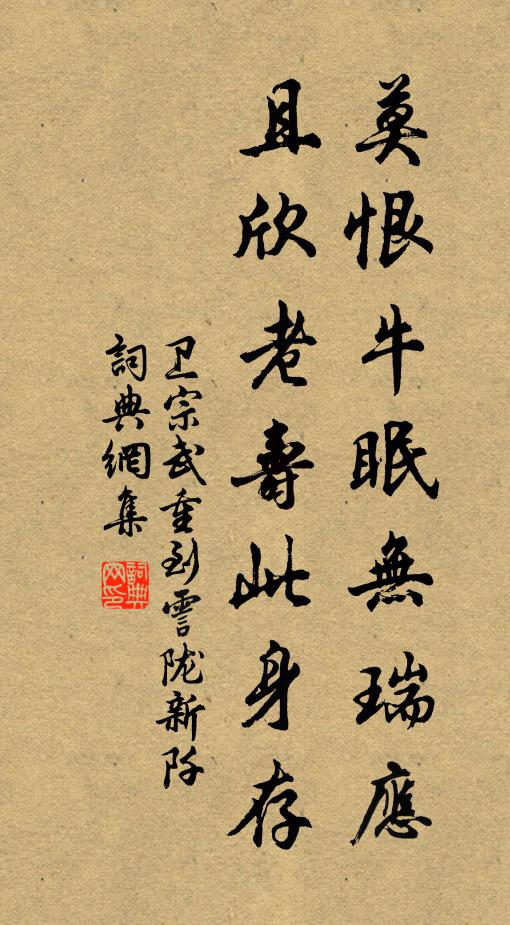 莫恨牛眠無瑞應
且欣老壽此身存
卫宗武重到霅陇新阡
詞典網集
詞典网印